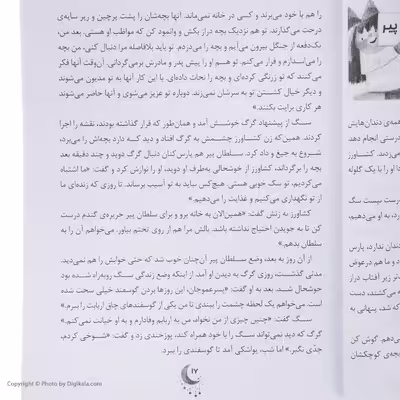 را هم با خود می‌برند و کسی در خانه نمی‌ماند. آنها بچه‌شان را پشت پرچین و زیر سایه‌ی
درخت می‌گذارند. تو هم نزدیک بچه دراز بکش و وانمود کن که مواظب او هستی. بعد من،
یک‌دفعه از جنگل بیرون می‌آیم و بچه را می‌دزدم. تو باید بلافاصله مرا دنبال کنی، من بچه
را می‌اندازم و فرار می‌کنم. تو هم او را پیش پدر و مادرش برمی‌گردانی. آن‌وقت آنها فکر
می‌کنند که تو زرنگی کرده‌ای و بچه را نجات داده‌ای. با این کار آنها به تو مدیون می‌شوند
و دیگر خیال کشتن تو به سرشان نمی‌زند. دوباره تو عزیز می‌شوی و آنها حاضر می‌شوند
هر کاری برایت بکنند.»
سگ از پیشنهاد گرگ خوشش آمد و همان‌طور که قرار گذاشته بودند، نقشه را اجرا
کردند. همین‌که زن کشاورز چشمش به گرگ افتاد و دید که دارد بچه‌اش را می‌برد،
شروع به جیغ و داد کرد. سلطان پیر هم پارس‌کنان دنبال گرگ دوید و چند دقیقه بعد
بچه را برگرداند، کشاورز از خوشحالی به‌طرف او دوید، او را نوازش کرد و گفت: «ما اشتباه
می‌کردیم، تو سگ خوبی هستی. هیچ‌کس نباید به تو آسیب برساند. تا روزی که زنده‌ای ما
از تو نگهداری می‌کنیم و غذایت را می‌دهیم.»
کشاورز به زنش گفت: «همین‌الان به خانه برو و برای سلطان پیر حریره‌ی گندم درست
کن تا به جویدن احتیاج نداشته باشد. بالش مرا هم از روی تختم بیاور. می‌خواهم آن را به
سلطان بدهم.»
از آن روز به بعد، وضع سلطان پیر آن‌چنان خوب شد که حتی خوابش را هم نمی‌دید.
مدتی گذشت، روزی گرگ به دیدن او آمد. از اینکه وضع زندگی سگ روبه‌راه شده بود
خوشحال شد. بعد به او گفت: «پسرعموجان، این روزها بردن گوسفند خیلی سخت شده
است. می‌خواهم یک لحظه چشمت را ببندی تا من یکی از گوسفندهای چاق اربابت را ببرم.»
سگ گفت: «چنین چیزی از من نخواه، من به اربابم وفادارم و به او خیانت نمی‌کنم.»
گرگ که دید نمی‌تواند سگ را با خود همراه کند، پوزخندی زد و گفت: «شوخی کردم،
جدّی نگیر.» اما شب، یواشکی آمد تا گوسفندی را ببرد.
۱۷
پیر
همه‌ی دندان‌هایش
درستی انجام دهد
او را با یک گلوله
Copyright © Photo by Digikala.com